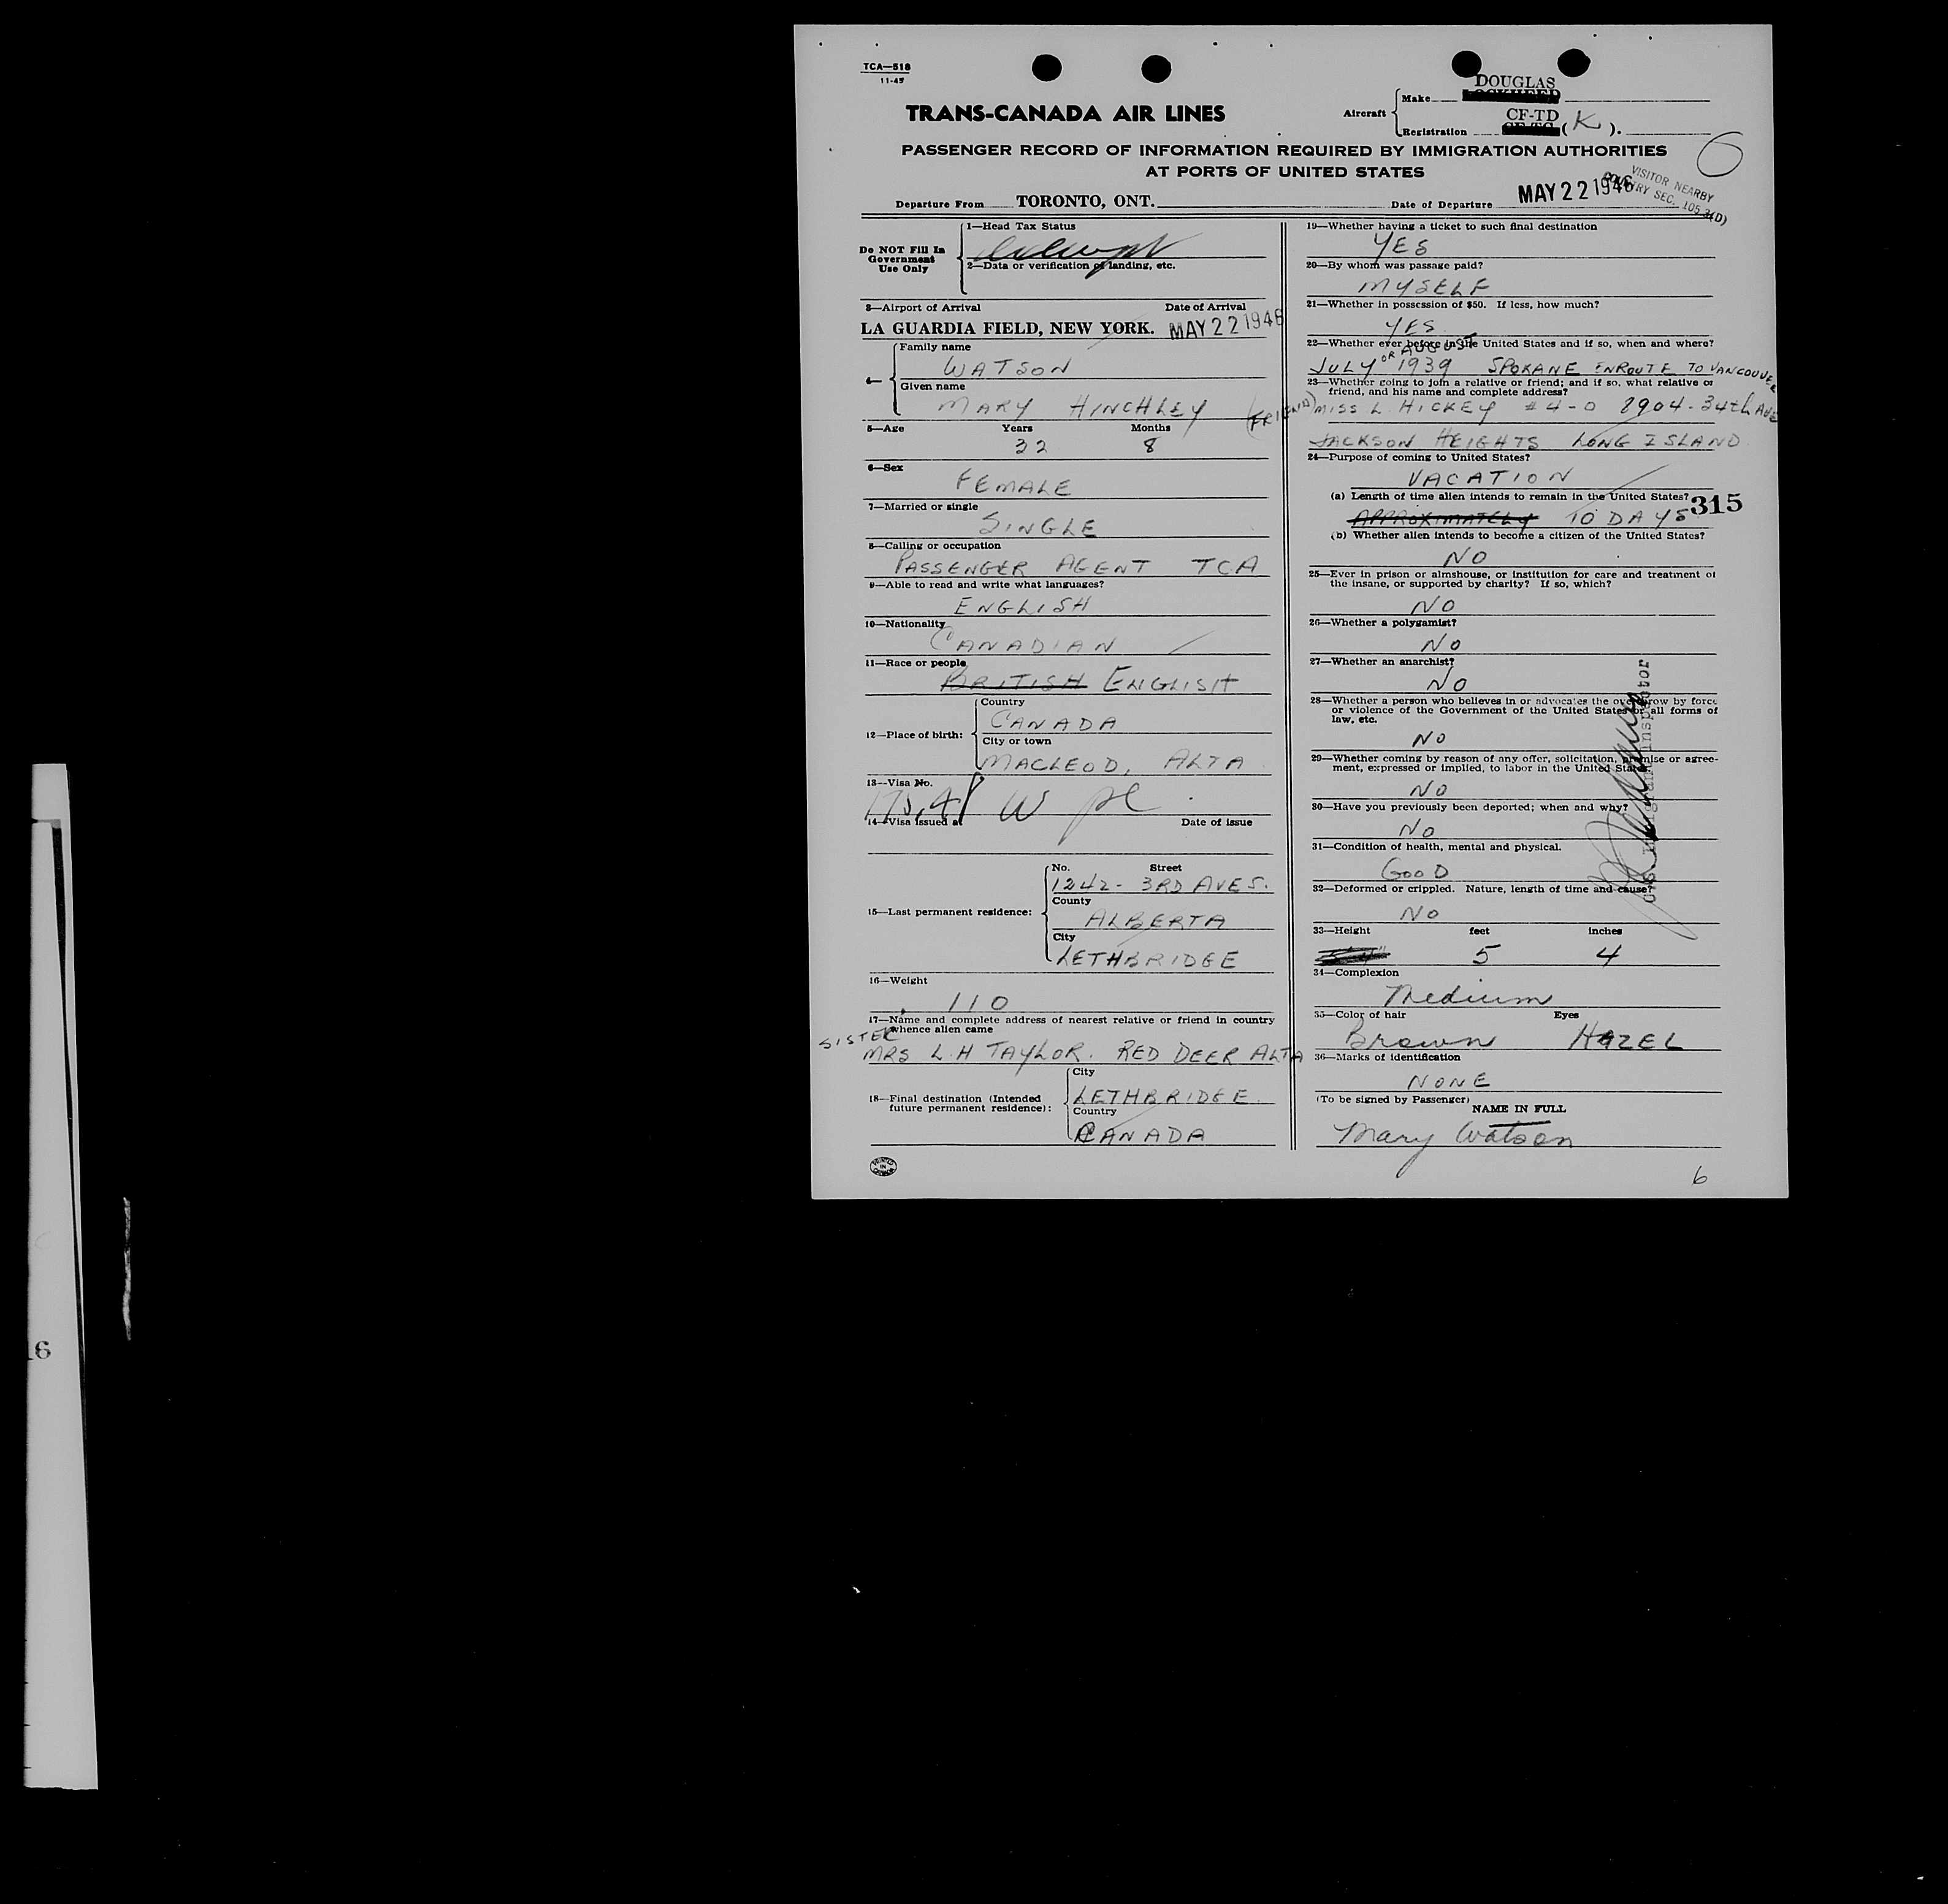 TCA—518
11-45
DOUGLAS
Aircraft
Make
LOCKHEED
TRANS-CANADA AIR LINES
CF-TD
Registration CF-TC (K).
PASSENGER RECORD OF INFORMATION REQUIRED BY IMMIGRATION AUTHORITIES
AT PORTS OF UNITED STATES
6
VISITOR NEARBY
COUNTRY SEC.
Departure From TORONTO, ONT. Date of Departure MAY 22 1946
Do NOT Fill In
Government
Use Only
1—Head Tax Status
2—Data or verification of landing, etc.
3—Airport of Arrival Date of Arrival
LA GUARDIA FIELD, NEW YORK. MAY 22 1946
4—
Family name
WATSON
Given name
MARY HINCHLEY
5—Age Years Months
32 8
6—Sex
FEMALE
7—Married or single
SINGLE
8—Calling or occupation
PASSENGER AGENT TCA
9—Able to read and write what languages?
ENGLISH
10—Nationality
CANADIAN
11—Race or people
BRITISH ENGLISH
12—Place of birth:
Country
CANADA
City or town
MACLEOD, ALTA
13—Visa No.
14—Visa issued at Date of issue
15—Last permanent residence:
No. Street
1242- 3RD AVE S.
County
ALBERTA
City
LETHBRIDGE
16—Weight
110
17—Name and complete address of nearest relative or friend in country
whence alien came
SISTER
MRS L. H TAYLOR. RED DEER ALTA
18—Final destination (Intended
future permanent residence):
City
LETHBRIDGE
Country
CANADA
PRINTED
IN
CANADA
19—Whether having a ticket to such final destination
YES
20—By whom was passage paid?
MYSELF
21—Whether in possession of $50. If less, how much?
YES
22—Whether ever before in the United States and if so, when and where?
JULY OR AUGUST 1939 SPOKANE ENROUTE TO VANCOUVER
23—Whether going to join a relative or friend; and if so, what relative or
friend, and his name and complete address?
(FRIEND) MISS L. HICKEY # 4-O 8904-34th AVE
JACKSON HEIGHTS LONG ISLAND.
24—Purpose of coming to United States?
VACATION
(a) Length of time alien intends to remain in the United States?
315
APPROXIMATELY 10 DAYS
(b) Whether alien intends to become a citizen of the United States?
NO
25—Ever in prison or almshouse, or institution for care and treatment of
the insane, or supported by charity? If so, which?
NO
26—Whether a polygamist?
NO
27—Whether an anarchist?
NO
28—Whether a person who believes in or advocates the overthrow by force
or violence of the Government of the United States or all forms of
law, etc.
NO
29—Whether coming by reason of any offer, solicitation, promise or agree-
ment, expressed or implied, to labor in the United States.
NO
30—Have you previously been deported; when and why?
NO
31—Condition of health, mental and physical.
GOOD
32—Deformed or crippled. Nature, length of time and cause?
NO
33—Height feet inches
5 4
34—Complexion
Medium
35—Color of hair Eyes
Brown HAZEL
36—Marks of identification
NONE
(To be signed by Passenger)
NAME IN FULL
Mary Watson
6
Inspector
6